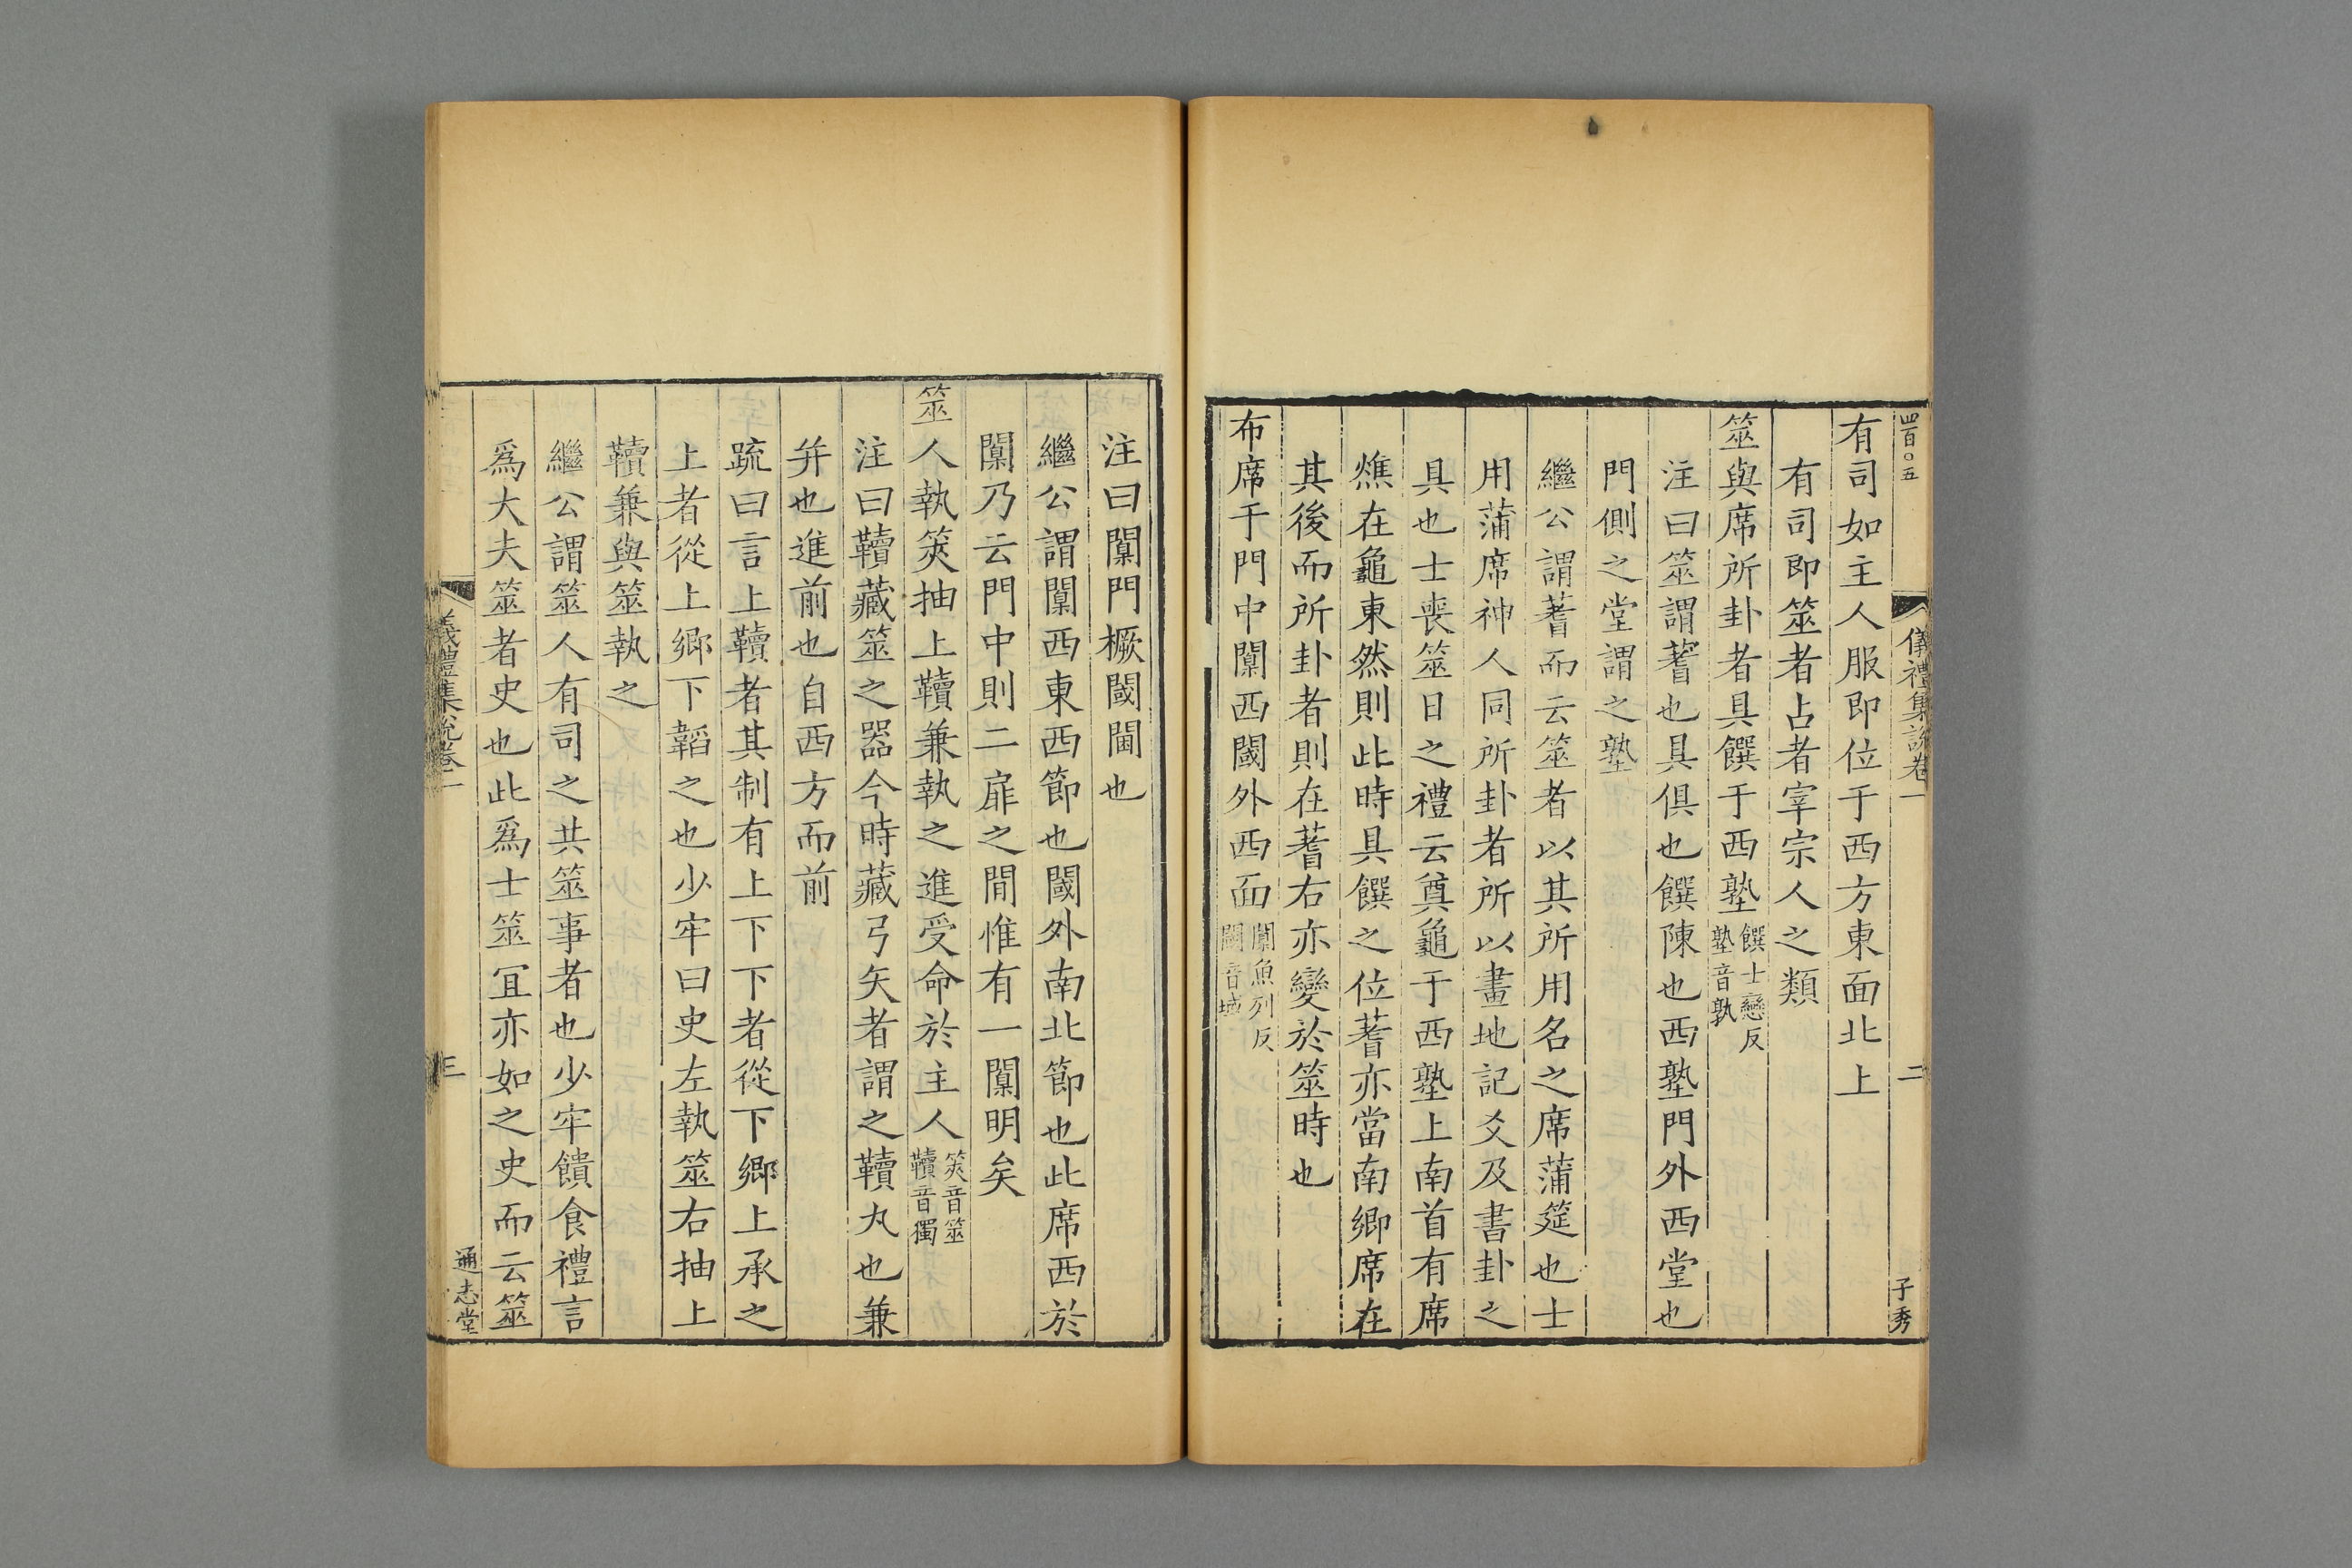 四百○五
儀禮集說卷一
二
子秀
有司如主人服即位于西方東面北上
有司即筮者占者宰宗人之類
筮與席所卦者具饌于西塾饌士戀反塾音孰
注曰筮謂蓍也具俱也饌陳也西塾門外西堂也
門側之堂謂之塾
繼公謂蓍而云筮者以其所用名之席蒲筵也士
用蒲席神人同所卦者所以畫地記爻及書卦之
具也士喪筮日之禮云奠龜于西塾上南首有席
燋在龜東然則此時具饌之位蓍亦當南鄉席在
其後而所卦者則在蓍右亦變於筮時也
布席于門中闑西閾外西面闑魚列反閾音域
注曰闑門橛閾閫也
繼公謂闑西東西節也閾外南北節也此席西於
闑乃云門中則二扉之間惟有一闑明矣
筮人執筴抽上韇兼執之進受命於主人筴音筮韇音獨
注曰韇藏筮之器今時藏弓矢者謂之韇丸也兼
并也進前也自西方而前
疏曰言上韇者其制有上下下者從下鄉上承之
上者從上鄉下韜之也少牢曰史左執筮右抽上
韇兼與筮執之
繼公謂筮人有司之共筮事者也少牢饋食禮言
爲大夫筮者史也此爲士筮宜亦如之史而云筮
儀禮集說卷一
三
通志堂